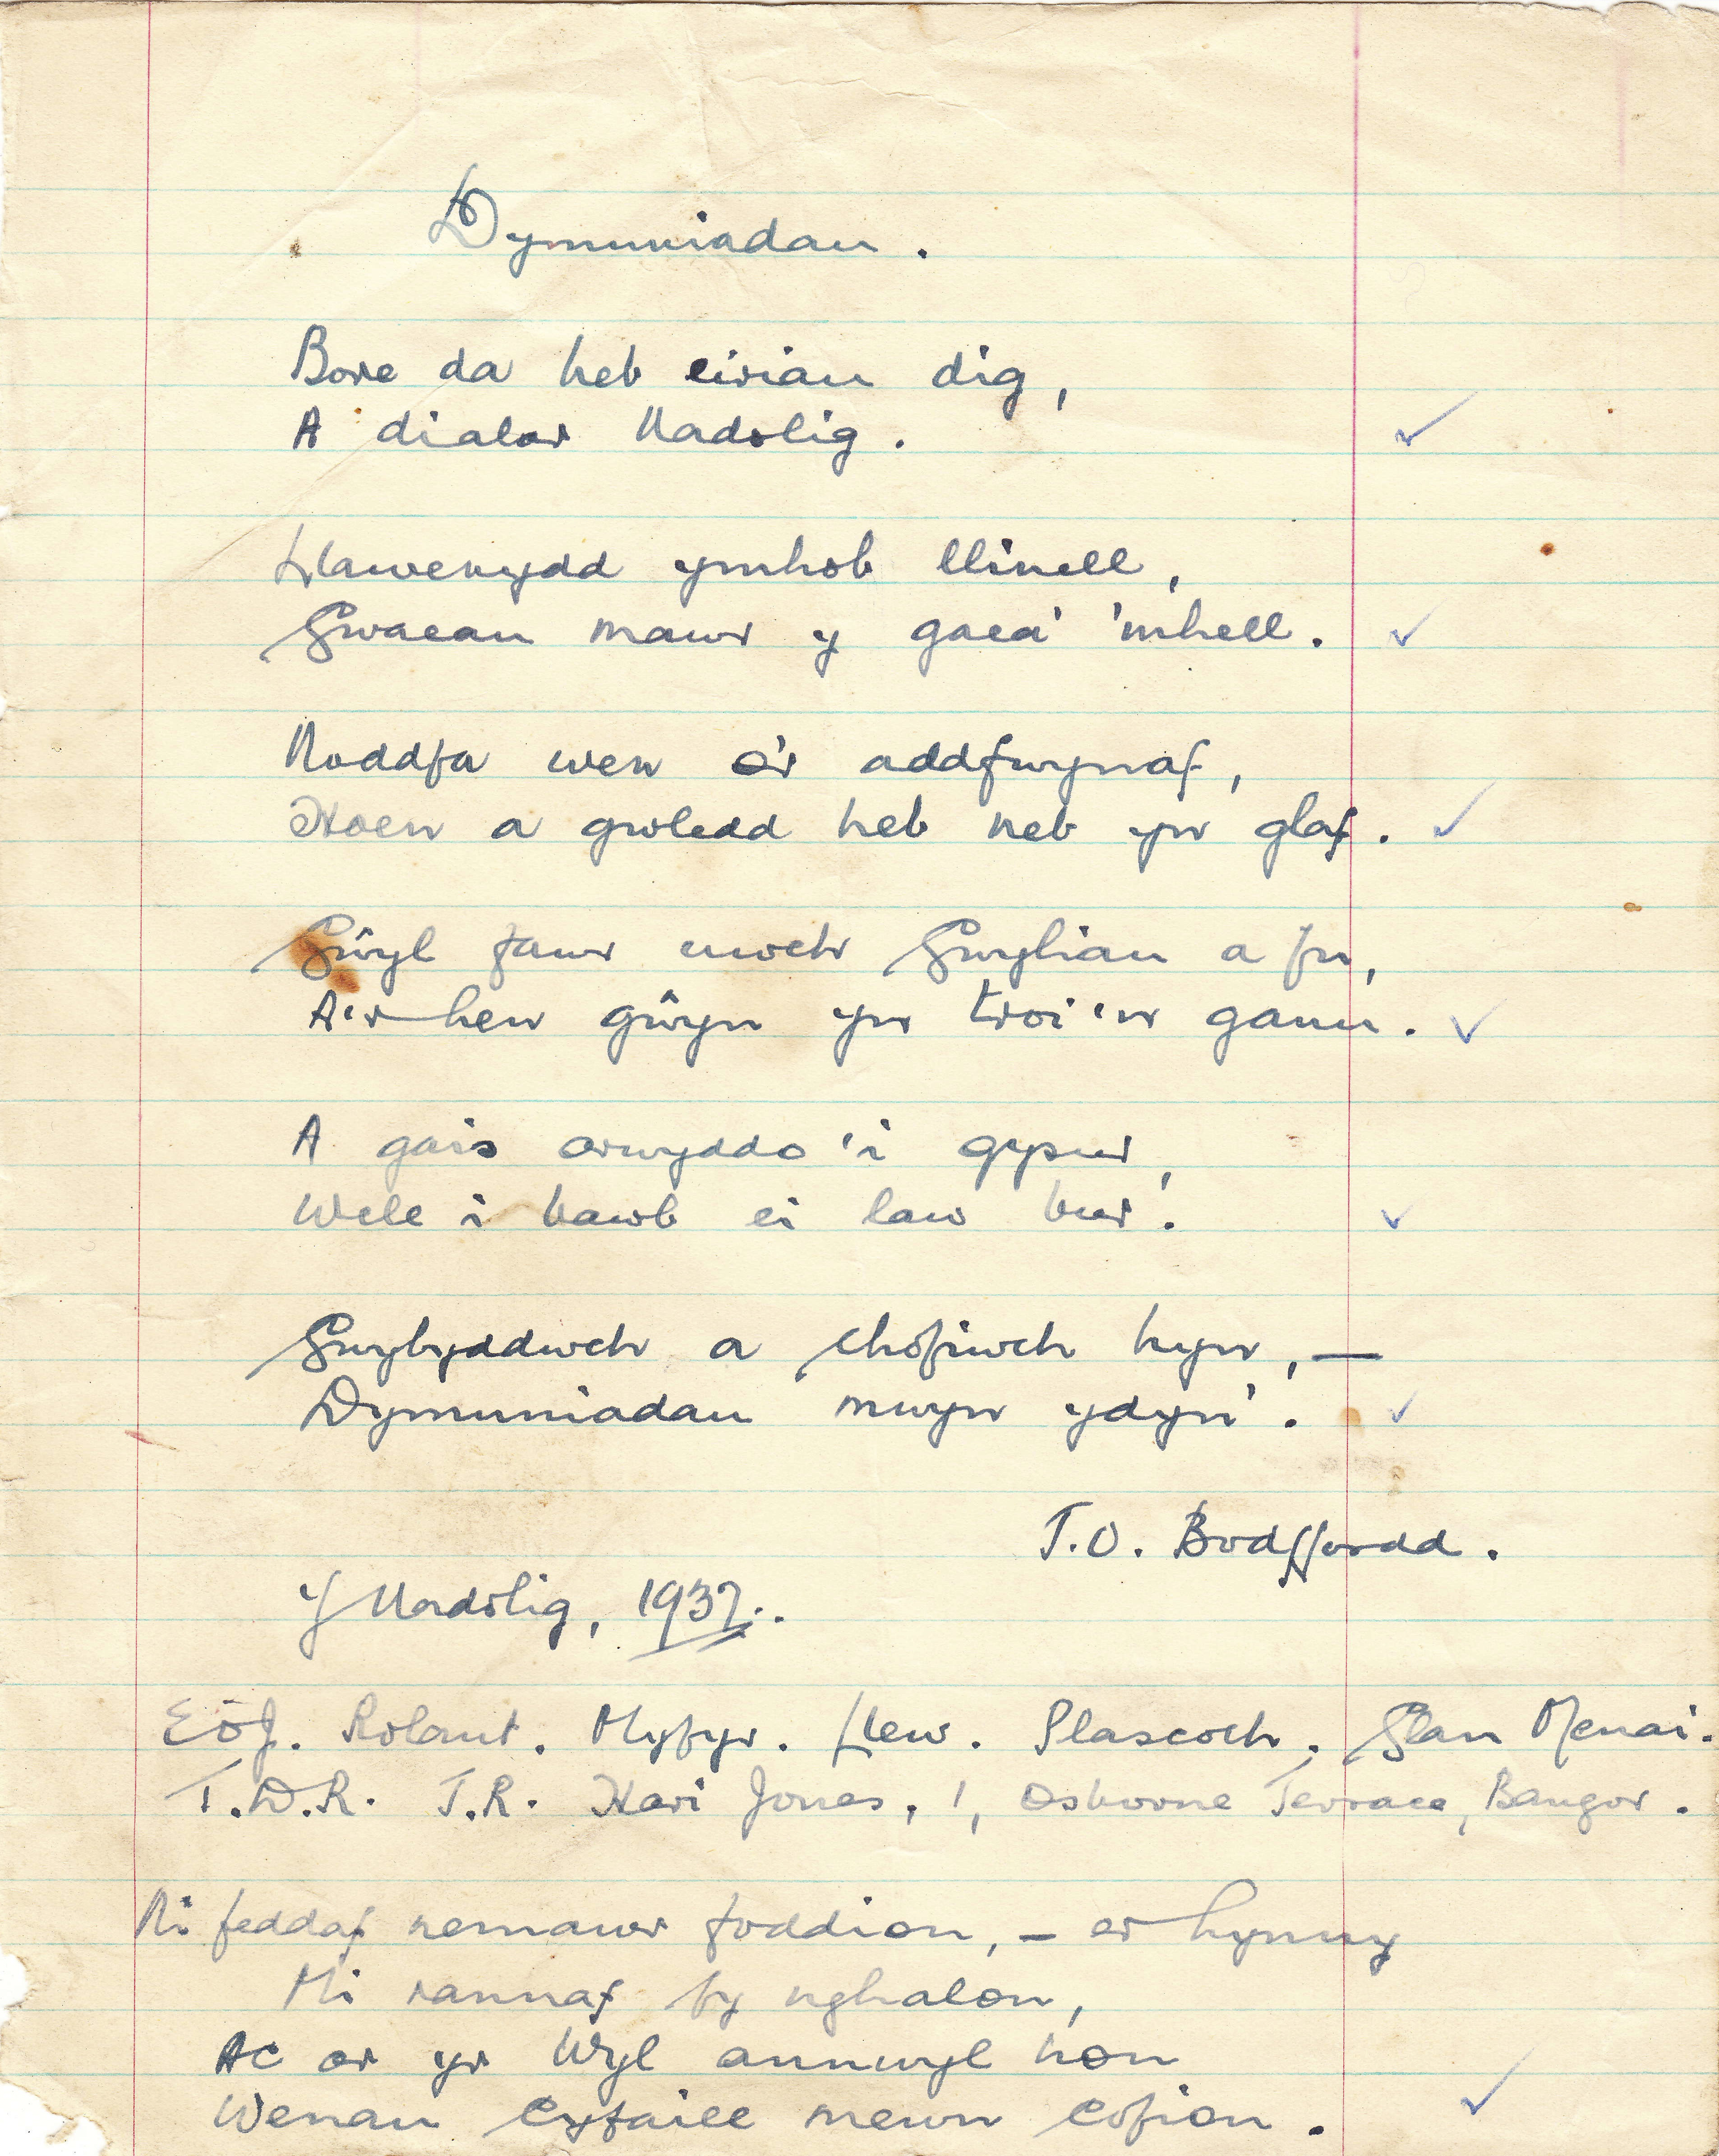 Dymuniadau.
Bore da heb eiriau dig,
A dialar Nadolig.
Llawenydd ymhob llinell,
Gwaeau mawr y gaea' 'mhell.
Noddfa wen o'r addfwynaf,
Hoen a gwledd heb neb yn glaf.
Gŵyl fawr uwch Gwyliau a fu,
A'r hen gŵyn yn troi'n ganu.
A gais arwyddo'i gysur,
Wele i bawb ei law bur.
Gwybyddwch a chofiwch hyn,—
Dymuniadau mwyn ydyn'.
T.O. Bodffordd.
Y Nadolig, 1937.
E.O.J. Rolant. Myfyr. Llew. Plascoch. Glan Menai.
T.D.R. T.R. Hari Jones, 1, Osborne Terrace, Bangor.
Ni feddaf nemawr foddion,— er hynny
Mi rannaf fy nghalon,
Ac ar yr Wyl annwyl hon
Wenau cyfaill mewn cofion.